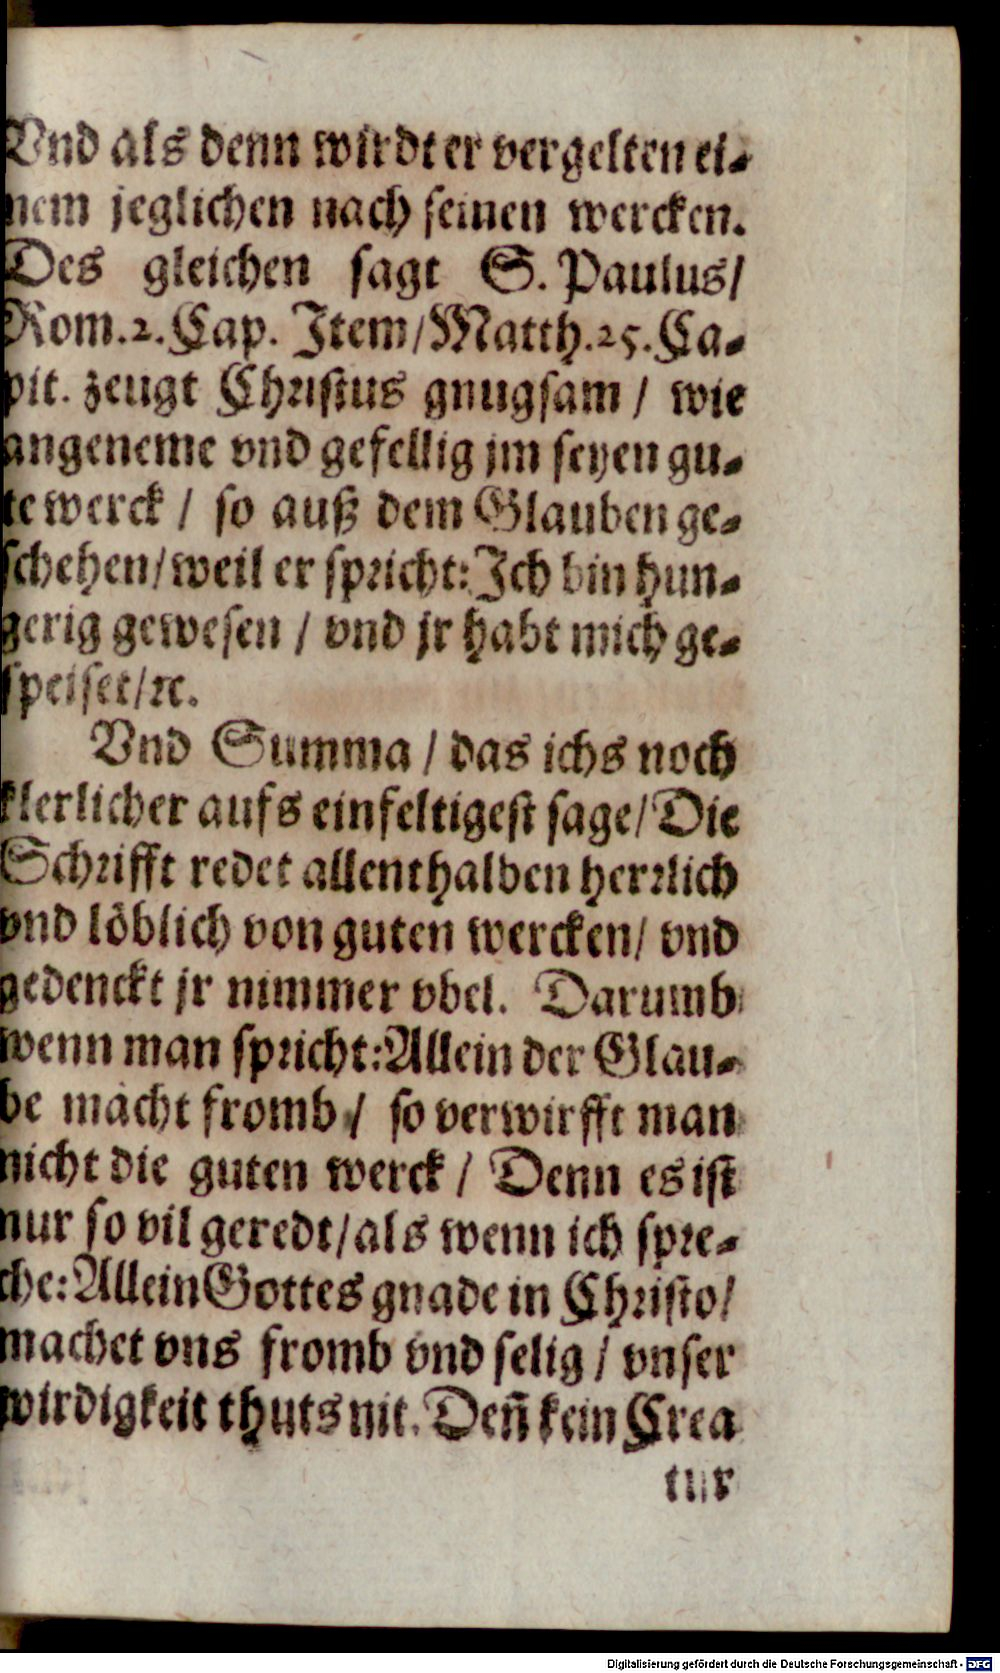 Vnd als denn wirdt er vergelten ei-
nem jeglichen nach seinen wercken.
Des gleichen sagt S. Paulus/
Rom. 2. Cap. Item/ Matth. 25. Ca-
pit. zeugt Christus gnugsam / wie
angeneme vnd gefellig jm seyen gu-
te werck / so auß dem Glauben ge-
schehen/ weil er spricht: Ich bin hun-
gerig gewesen / vnd jr habt mich ge-
speiset/ ꝛc.
Vnd Summa / das ichs noch
klerlicher aufs einfeltigest sage/ Die
Schrifft redet allenthalben herrlich
vnd löblich von guten wercken/ vnd
gedenckt jr nimmer vbel. Darumb
wenn man spricht: Allein der Glau-
be macht fromb / so verwirfft man
nicht die guten werck / Denn es ist
nur so vil geredt/ als wenn ich spre-
che: Allein Gottes gnade in Christo/
machet vns fromb vnd selig / vnser
wirdigkeit thuts nit. Deñ kein Crea
tur
Digitalisierung gefördert durch die Deutsche Forschungsgemeinschaft - DFG